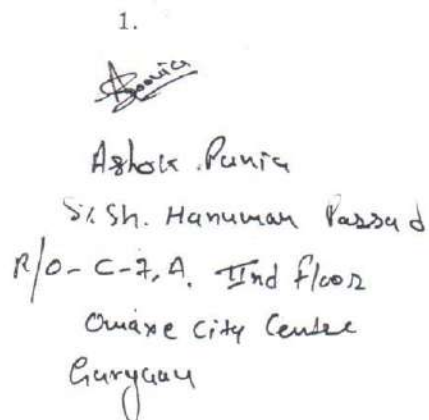 1.
Ashok Punia
S/. Sh. Hanuman Passad
R/O - C-7, A. IInd Floor
Omaxe City Center
Gurgaon